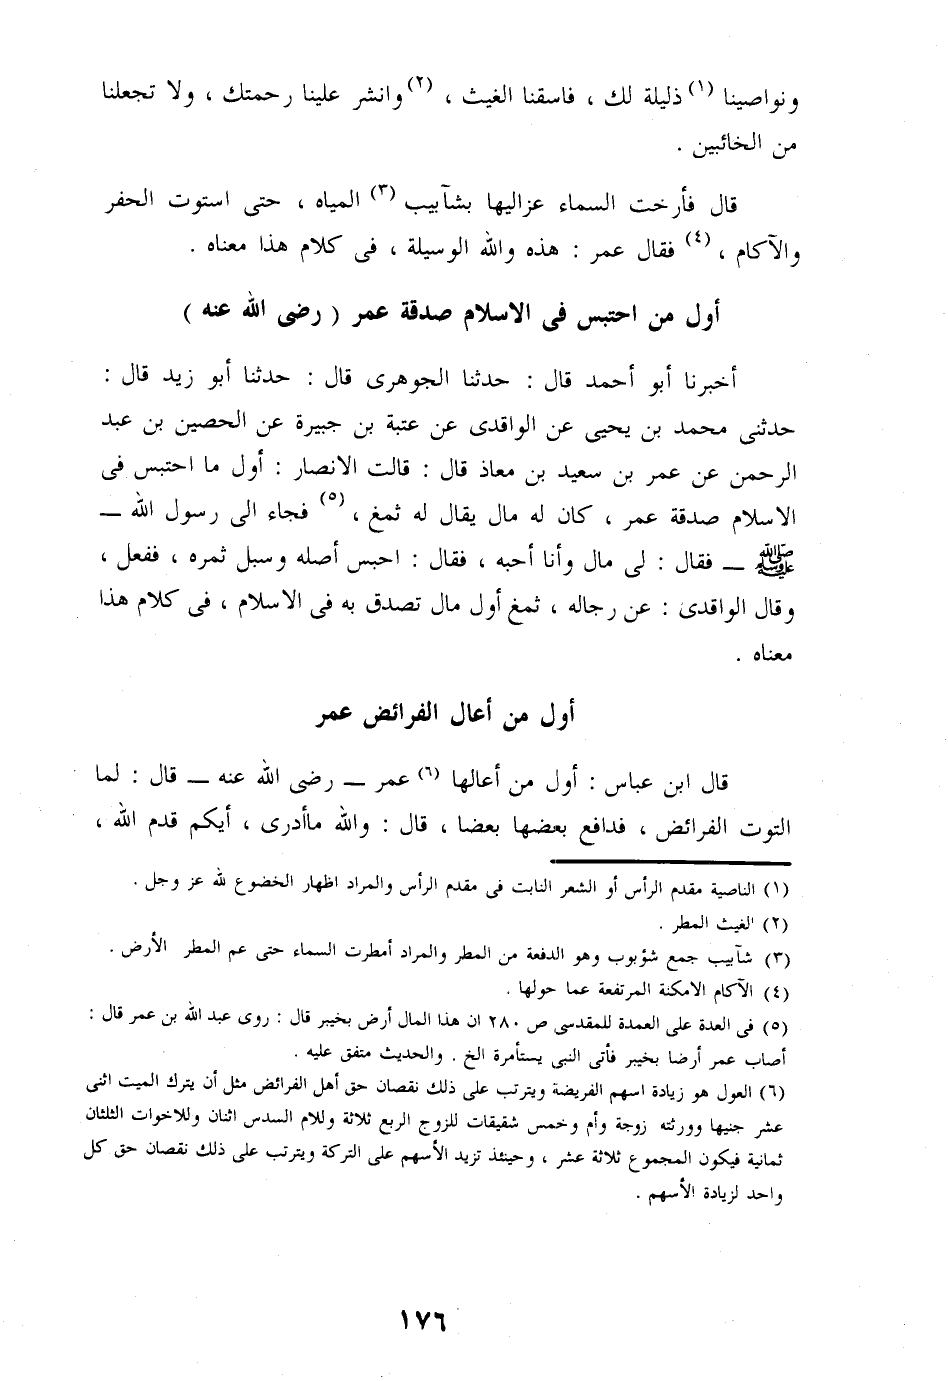 ونواصينا (١) ذليلة لك ، فاسقنا الغيث ، (٢) وانشر علينا رحمتك ، ولا تجعلنا
من الخائبين .
قال فأرخت السماء عزاليها بشآبيب (٣) المياه ، حتى استوت الحفر
والآكام ، (٤) فقال عمر : هذه والله الوسيلة ، فى كلام هذا معناه .
أول من احتبس فى الاسلام صدقة عمر ( رضى الله عنه )
أخبرنا أبو أحمد قال : حدثنا الجوهرى قال : حدثنا أبو زيد قال :
حدثنى محمد بن يحيى عن الواقدى عن عتبة بن جبيرة عن الحصين بن عبد
الرحمن عن عمر بن سعيد بن معاذ قال : قالت الانصار : أول ما احتبس فى
الاسلام صدقة عمر ، كان له مال يقال له ثمغ ، (٥) فجاء الى رسول الله ــ
ﷺ ــ فقال : لى مال وأنا أحبه ، فقال : احبس أصله وسبل ثمره ، ففعل ،
وقال الواقدى : عن رجاله ، ثمغ أول مال تصدق به فى الاسلام ، فى كلام هذا
معناه .
أول من أعال الفرائض عمر
قال ابن عباس : أول من أعالها (٦) عمر ــ رضى الله عنه ــ قال : لما
التوت الفرائض ، فدافع بعضها بعضا ، قال : والله ماأدرى ، أيكم قدم الله ،
(١) الناصية مقدم الرأس أو الشعر النابت فى مقدم الرأس والمراد اظهار الخضوع لله عز وجل .
(٢) الغيث المطر .
(٣) شآبيب جمع شؤبوب وهو الدفعة من المطر والمراد أمطرت السماء حتى عم المطر الأرض .
(٤) الآكام الامكنة المرتفعة عما حولها .
(٥) فى العدة على العمدة للمقدسى ص ٢٨٠ ان هذا المال أرض بخيبر قال : روى عبد الله بن عمر قال :
أصاب عمر أرضا بخيبر فأتى النبى يستأمرة الخ . والحديث متفق عليه .
(٦) العول هو زيادة اسهم الفريضة ويترتب على ذلك نقصان حق أهل الفرائض مثل أن يترك الميت اثنى
عشر جنيها وورثته زوجة وأم وخمس شقيقات للزوج الربع ثلاثة وللام السدس اثنان وللاخوات الثلثان
ثمانية فيكون المجموع ثلاثة عشر ، وحينئذ تزيد الأسهم على التركة ويترتب على ذلك نقصان حق كل
واحد لزيادة الأسهم .
١٧٦